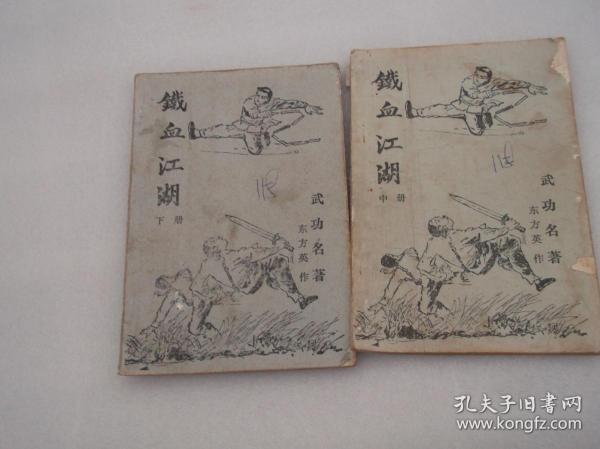 鐵血江湖
下册
武功名著
东方英作
鐵血江湖
中册
武功名著
东方英作
孔夫子旧书网
www.kongfz.com